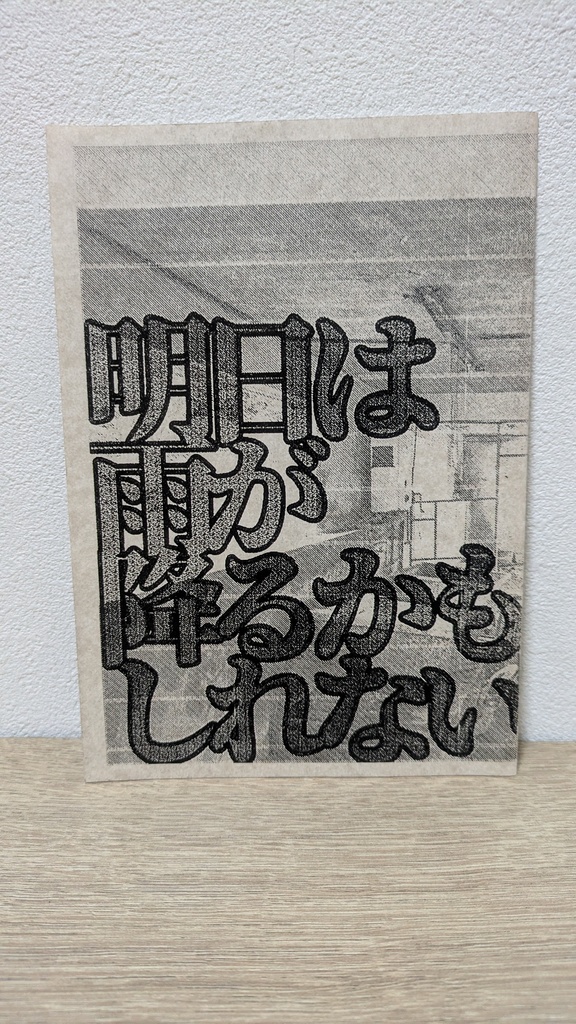 明日は
雨が
降るかも
しれない